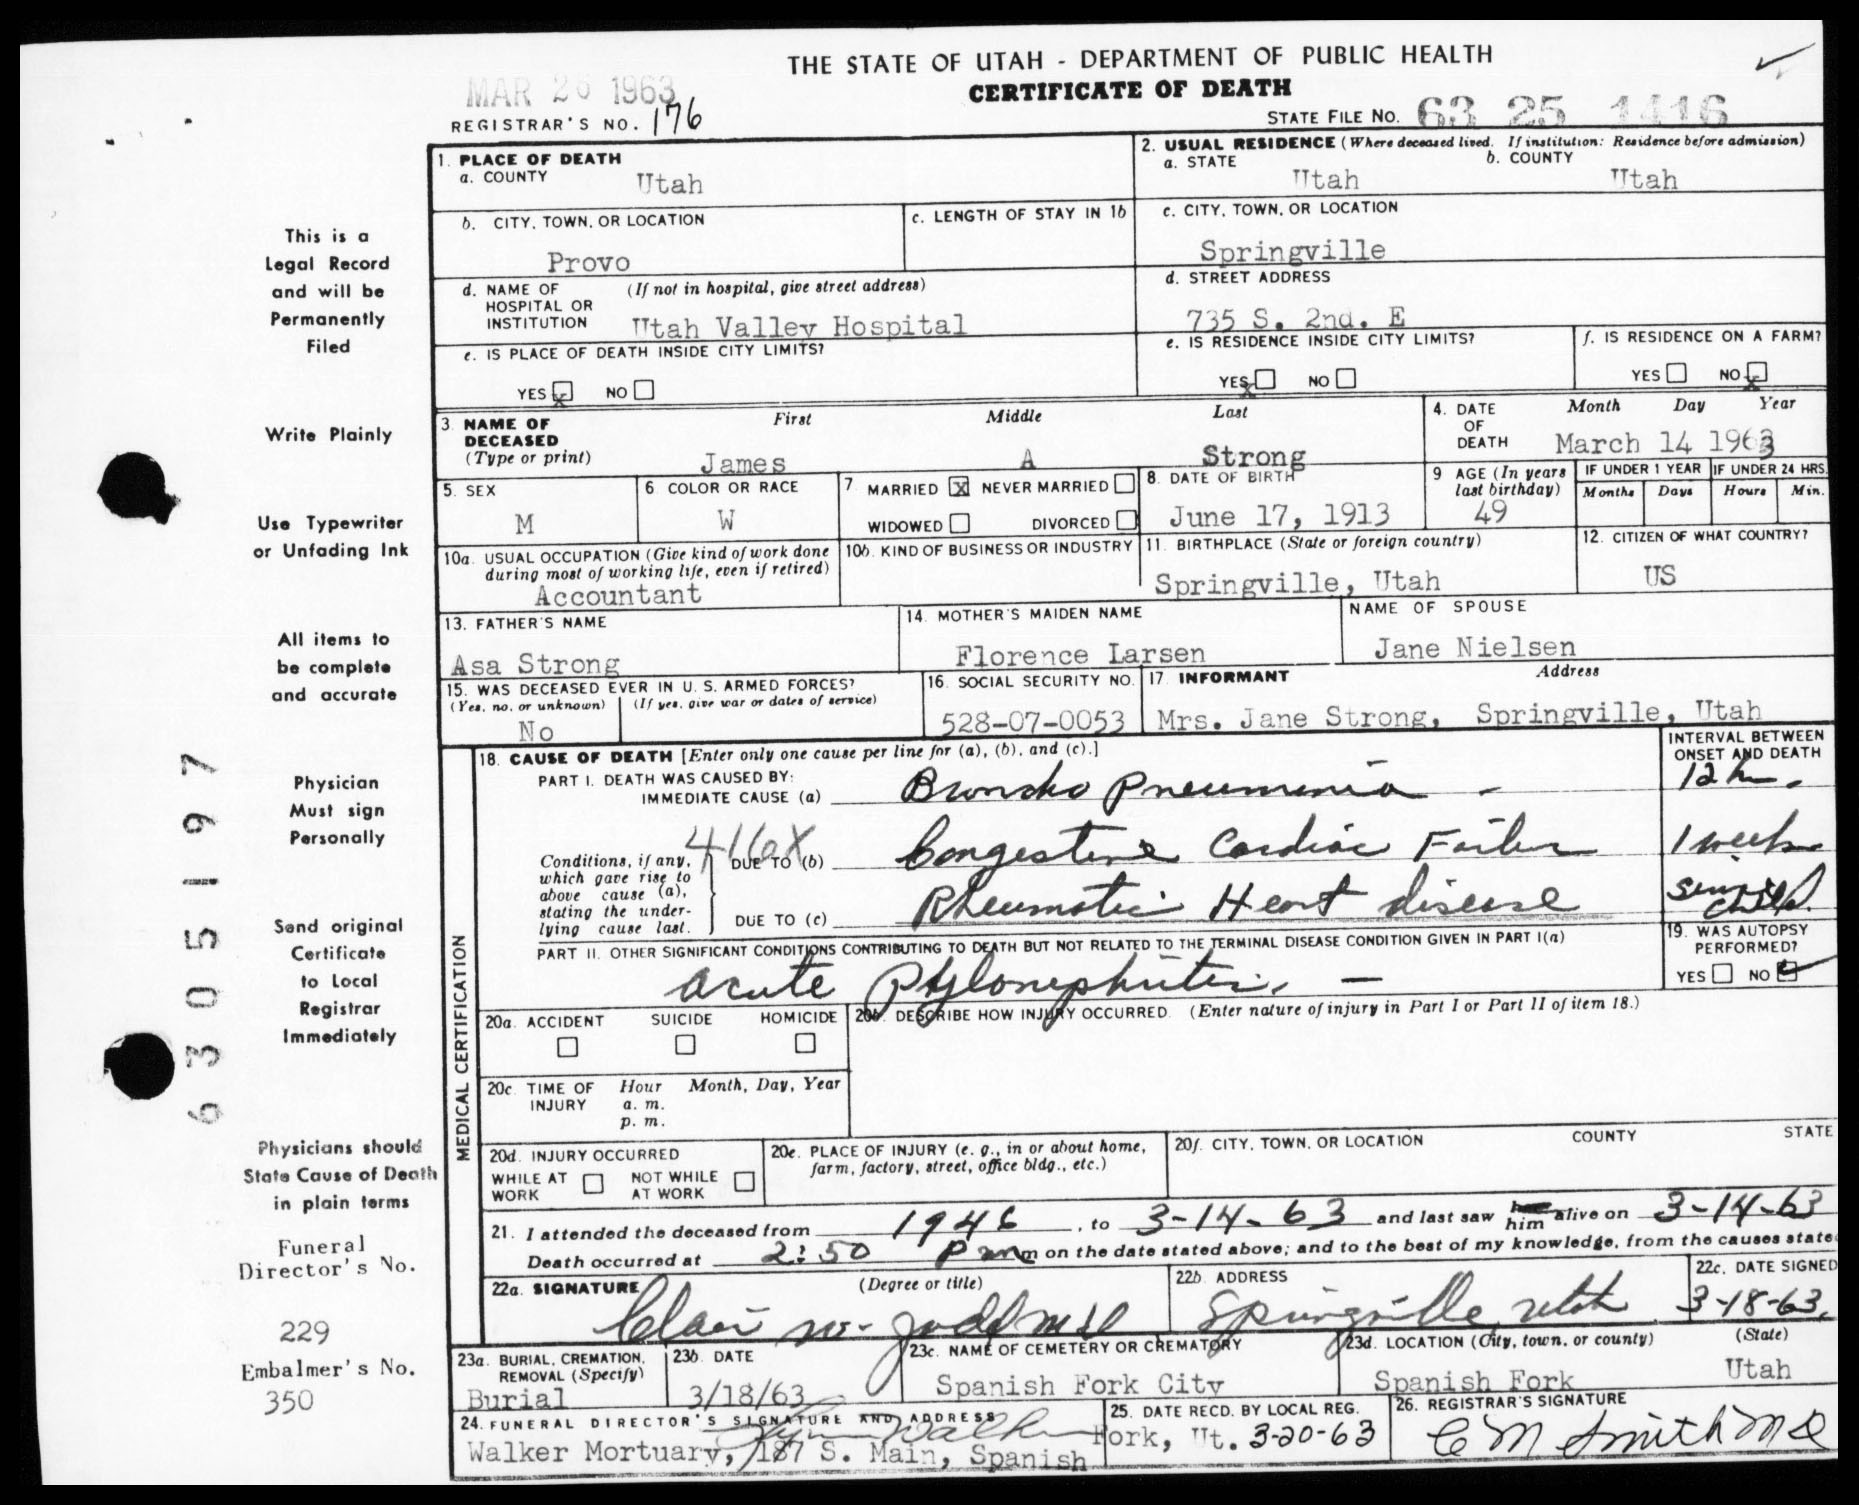 THE STATE OF UTAH - DEPARTMENT OF PUBLIC HEALTH
CERTIFICATE OF DEATH
MAR 26 1963
REGISTRAR'S NO. 176
STATE FILE NO. 63 25 1416
1. PLACE OF DEATH
a. COUNTY Utah
2. USUAL RESIDENCE (Where deceased lived. If institution: Residence before admission)
a. STATE Utah b. COUNTY Utah
b. CITY, TOWN, OR LOCATION Provo
c. LENGTH OF STAY IN 1b
c. CITY, TOWN, OR LOCATION
Springville
d. NAME OF HOSPITAL OR INSTITUTION (If not in hospital, give street address)
Utah Valley Hospital
d. STREET ADDRESS
735 S. 2nd. E
e. IS PLACE OF DEATH INSIDE CITY LIMITS?
YES x NO
e. IS RESIDENCE INSIDE CITY LIMITS?
YES x NO
f. IS RESIDENCE ON A FARM?
YES NO x
3. NAME OF DECEASED (Type or print)
First Middle Last
James A Strong
4. DATE OF DEATH Month Day Year
March 14 1963
5. SEX
M
6 COLOR OR RACE
W
7. MARRIED X NEVER MARRIED
WIDOWED DIVORCED
8. DATE OF BIRTH
June 17, 1913
9 AGE (In years last birthday)
49
IF UNDER 1 YEAR
Months Days
IF UNDER 24 HRS.
Hours Min.
10a. USUAL OCCUPATION (Give kind of work done during most of working life, even if retired)
Accountant
10b. KIND OF BUSINESS OR INDUSTRY
11. BIRTHPLACE (State or foreign country)
Springville, Utah
12. CITIZEN OF WHAT COUNTRY?
US
13. FATHER'S NAME
Asa Strong
14. MOTHER'S MAIDEN NAME
Florence Larsen
NAME OF SPOUSE
Jane Nielsen
15. WAS DECEASED EVER IN U. S. ARMED FORCES?
(Yes, no, or unknown) (If yes, give war or dates of service)
No
16. SOCIAL SECURITY NO.
528-07-0053
17. INFORMANT Address
Mrs. Jane Strong, Springville, Utah
MEDICAL CERTIFICATION
18. CAUSE OF DEATH [Enter only one cause per line for (a), (b), and (c).]
INTERVAL BETWEEN ONSET AND DEATH
PART I. DEATH WAS CAUSED BY:
IMMEDIATE CAUSE (a) Broncho Pneumonia - 12 hr.
Conditions, if any, which gave rise to above cause (a), stating the underlying cause last.
416X
DUE TO (b) Congestive Cardiac Failure 1 week
DUE TO (c) Rheumatic Heart disease since child.
PART II. OTHER SIGNIFICANT CONDITIONS CONTRIBUTING TO DEATH BUT NOT RELATED TO THE TERMINAL DISEASE CONDITION GIVEN IN PART I(a)
acute Pylonephritis. -
19. WAS AUTOPSY PERFORMED?
YES NO
20a. ACCIDENT SUICIDE HOMICIDE
20b. DESCRIBE HOW INJURY OCCURRED. (Enter nature of injury in Part I or Part II of item 18.)
20c. TIME OF INJURY Hour Month, Day, Year
a. m.
p. m.
20d. INJURY OCCURRED
WHILE AT WORK NOT WHILE AT WORK
20e. PLACE OF INJURY (e. g., in or about home, farm, factory, street, office bldg., etc.)
20f. CITY, TOWN, OR LOCATION COUNTY STATE
21. I attended the deceased from 1946, to 3-14-63 and last saw him alive on 3-14-63
Death occurred at 2:50 P m m on the date stated above; and to the best of my knowledge, from the causes state
22a. SIGNATURE (Degree or title)
Clair W. Judd MD
22b. ADDRESS
Springville, Utah
22c. DATE SIGNED
3-18-63.
23a. BURIAL, CREMATION, REMOVAL (Specify)
Burial
23b. DATE
3/18/63
23c. NAME OF CEMETERY OR CREMATORY
Spanish Fork City
23d. LOCATION (City, town, or county) (State)
Spanish Fork Utah
24. FUNERAL DIRECTOR'S SIGNATURE AND ADDRESS
Walker
Walker Mortuary, 187 S. Main, Spanish Fork, Ut.
25. DATE RECD. BY LOCAL REG.
3-20-63
26. REGISTRAR'S SIGNATURE
C M Smith MD
This is a
Legal Record
and will be
Permanently
Filed
Write Plainly
Use Typewriter
or Unfading Ink
All items to
be complete
and accurate
Physician
Must sign
Personally
Send original
Certificate
to Local
Registrar
Immediately
Physicians should
State Cause of Death
in plain terms
Funeral
Director's No.
229
Embalmer's No.
350
63051197